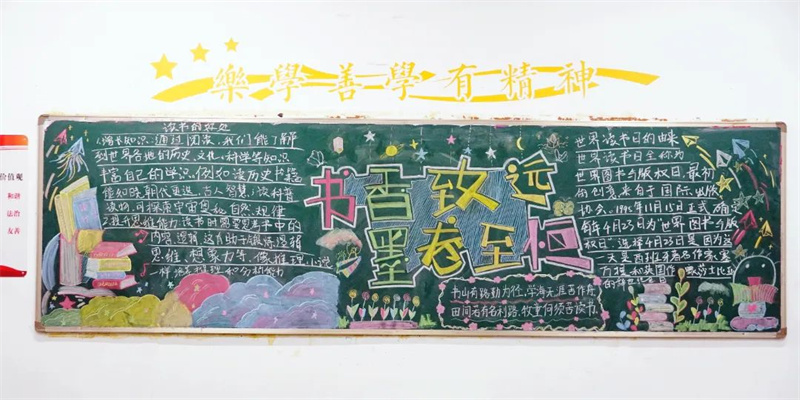 樂學善學有精神
价值观
和谐
法治
友善
读书的好处
增长知识:通过阅读,我们能了解
到世界各地的历史、文化、科学等知识
丰富自己的学识,例如读历史书籍
能知晓朝代更迭、古人智慧;读科普
读物,可探索宇宙奥秘自然规律
思维能力
思维、想象力等,像推理小说
书香致远
墨卷至恒
书山有路勤为径,学海无涯苦作舟
田间若有名利路,牧童何须苦读书
世界读日的由来
世界读书日全称为
世界图书与版权日,最初
的创意来自于国际出版
协会。1995年11月15日正式确
每年4月23日为“世界图书与版
权日”选择4月23日是因为这
一天是西班牙著名作家塞
万提斯和英国作家莎士比亚